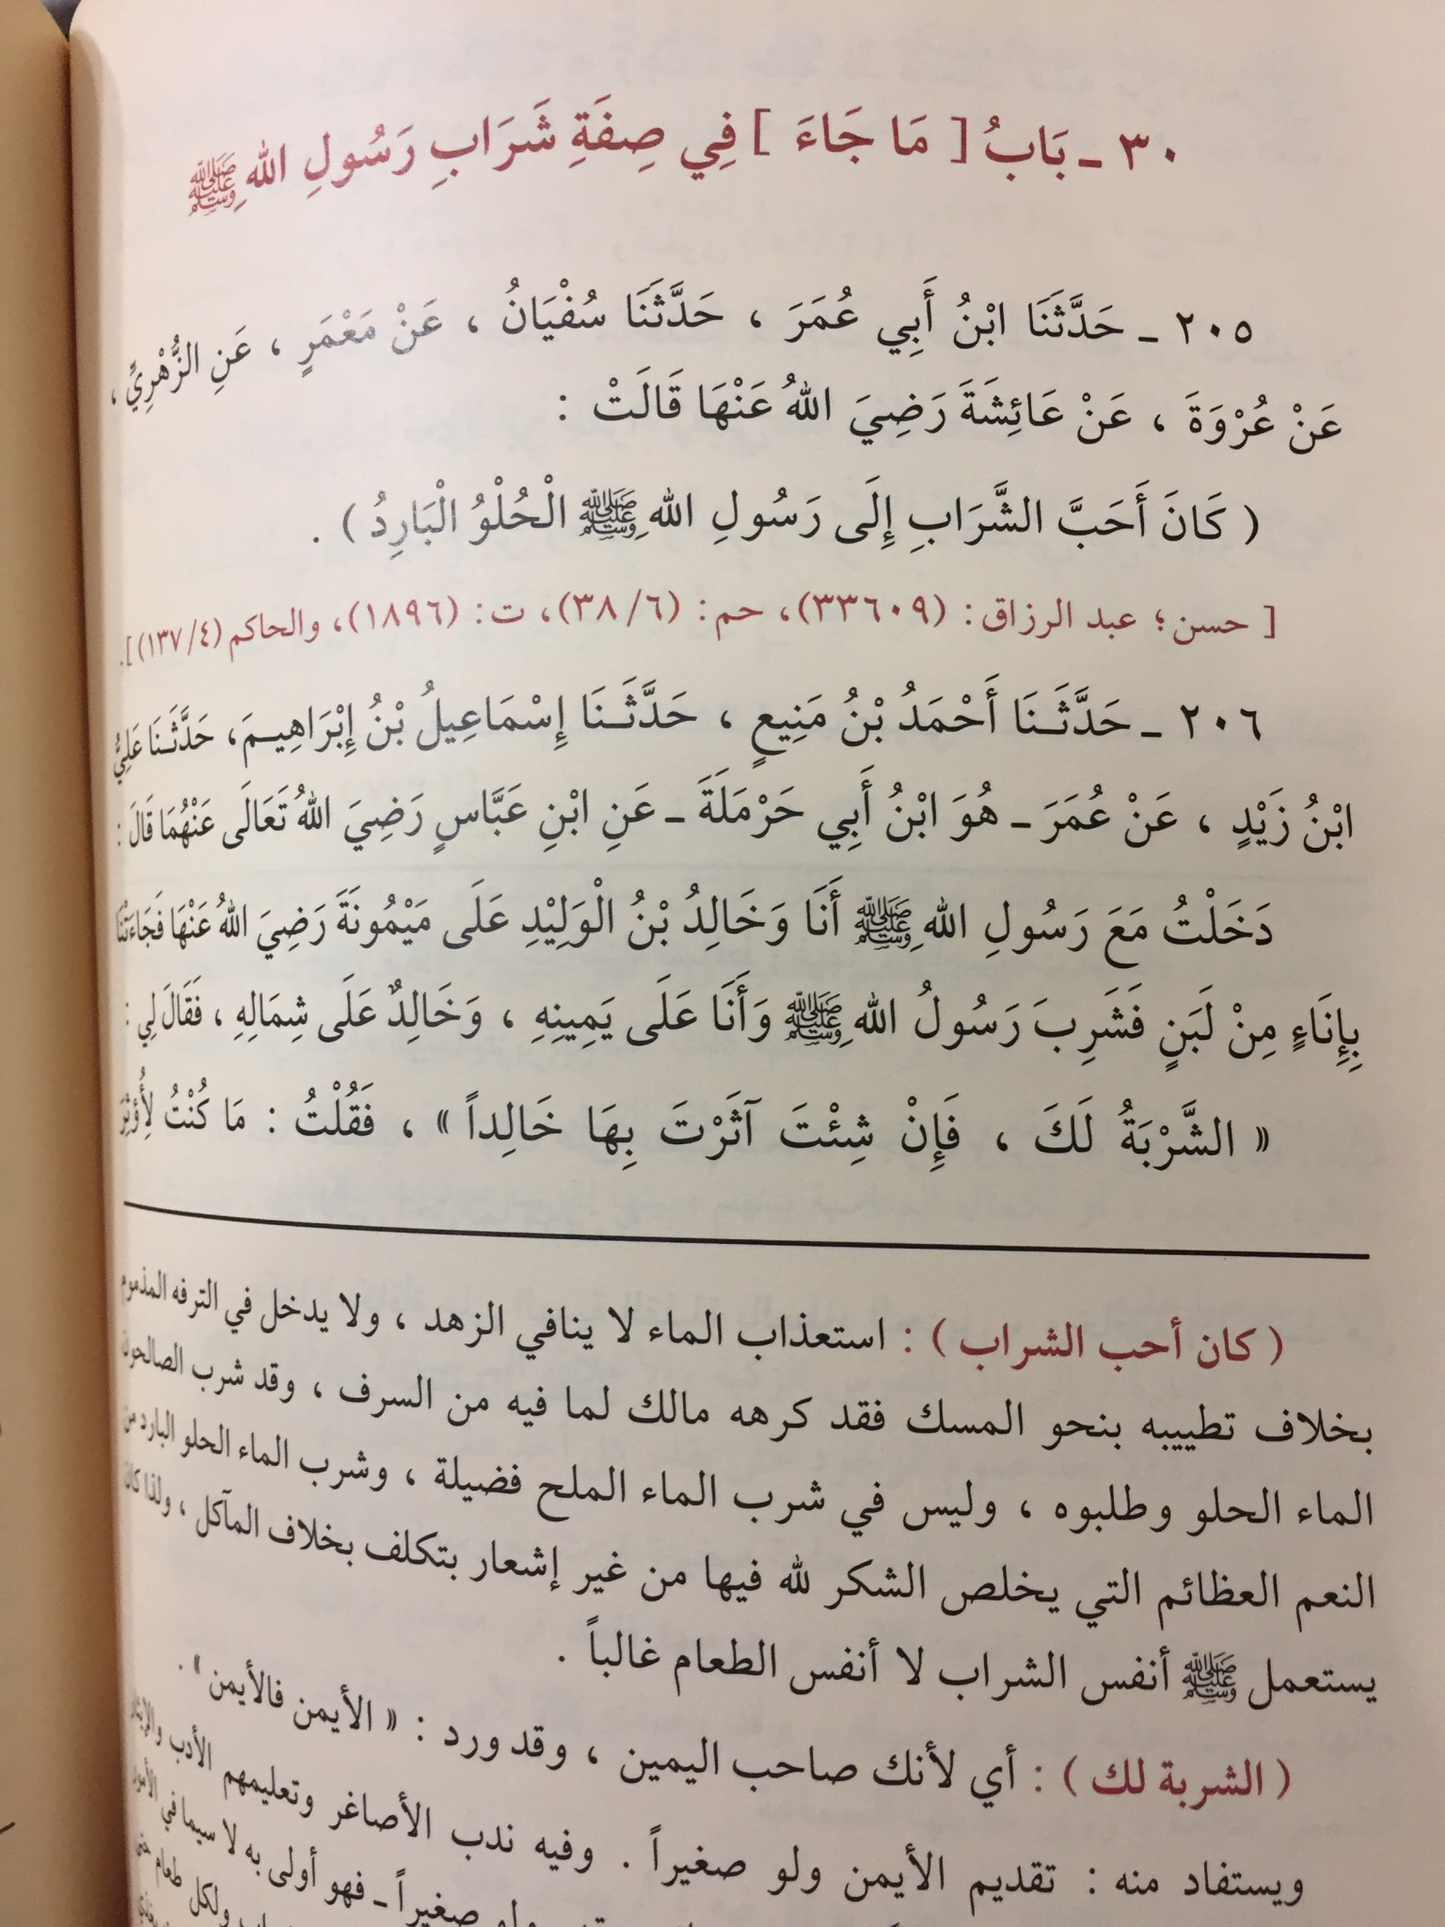 ٣٠ ـ بَابُ [ مَا جَاءَ ] فِي صِفَةِ شَرَابِ رَسُولِ اللهِ ﷺ
٢٠٥ ـ حَدَّثَنَا ابْنُ أَبِي عُمَرَ ، حَدَّثَنَا سُفْيَانُ ، عَنْ مَعْمَرٍ ، عَنِ الزُّهْرِيِّ ،
عَنْ عُرْوَةَ ، عَنْ عَائِشَةَ رَضِيَ اللهُ عَنْهَا قَالَتْ :
( كَانَ أَحَبَّ الشَّرَابِ إِلَى رَسُولِ اللهِ ﷺ الْحُلْوُ الْبَارِدُ ) .
[ حسن ؛ عبد الرزاق : (٣٣٦٠٩)، حم : (٣٨/٦)، ت : (١٨٩٦)، والحاكم (١٣٧/٤)].
٢٠٦ ـ حَدَّثَنَا أَحْمَدُ بْنُ مَنِيعٍ ، حَدَّثَنَا إِسْمَاعِيلُ بْنُ إِبْرَاهِيمَ، حَدَّثَنَا عَلِيُّ
ابْنُ زَيْدٍ ، عَنْ عُمَرَ ـ هُوَ ابْنُ أَبِي حَرْمَلَةَ ـ عَنِ ابْنِ عَبَّاسٍ رَضِيَ اللهُ تَعَالَى عَنْهُمَا قَالَ :
دَخَلْتُ مَعَ رَسُولِ اللهِ ﷺ أَنَا وَخَالِدُ بْنُ الْوَلِيْدِ عَلَى مَيْمُونَةَ رَضِيَ اللهُ عَنْهَا فَجَاءَتْنَا
بِإِنَاءٍ مِنْ لَبَنٍ فَشَرِبَ رَسُولُ اللهِ ﷺ وَأَنَا عَلَى يَمِينِهِ ، وَخَالِدٌ عَلَى شِمَالِهِ ، فَقَالَ لِي :
« الشَّرْبَةُ لَكَ ، فَإِنْ شِئْتَ آثَرْتَ بِهَا خَالِداً » ، فَقُلْتُ : مَا كُنْتُ لِأُؤثِرَ
( كان أحب الشراب ) : استعذاب الماء لا ينافي الزهد ، ولا يدخل في الترفه المذموم
بخلاف تطييبه بنحو المسك فقد كرهه مالك لما فيه من السرف ، وقد شرب الصالحون
الماء الحلو وطلبوه ، وليس في شرب الماء الملح فضيلة ، وشرب الماء الحلو البارد من
النعم العظائم التي يخلص الشكر لله فيها من غير إشعار بتكلف بخلاف المآكل ، ولذا كان
يستعمل ﷺ أنفس الشراب لا أنفس الطعام غالباً .
( الشربة لك ) : أي لأنك صاحب اليمين ، وقد ورد : « الأيمن فالأيمن » .
ويستفاد منه : تقديم الأيمن ولو صغيراً . وفيه ندب الأصاغر وتعليمهم الأدب
ولو صغيراً ـ فهو أولى به لا سيما في
ولكل طعام